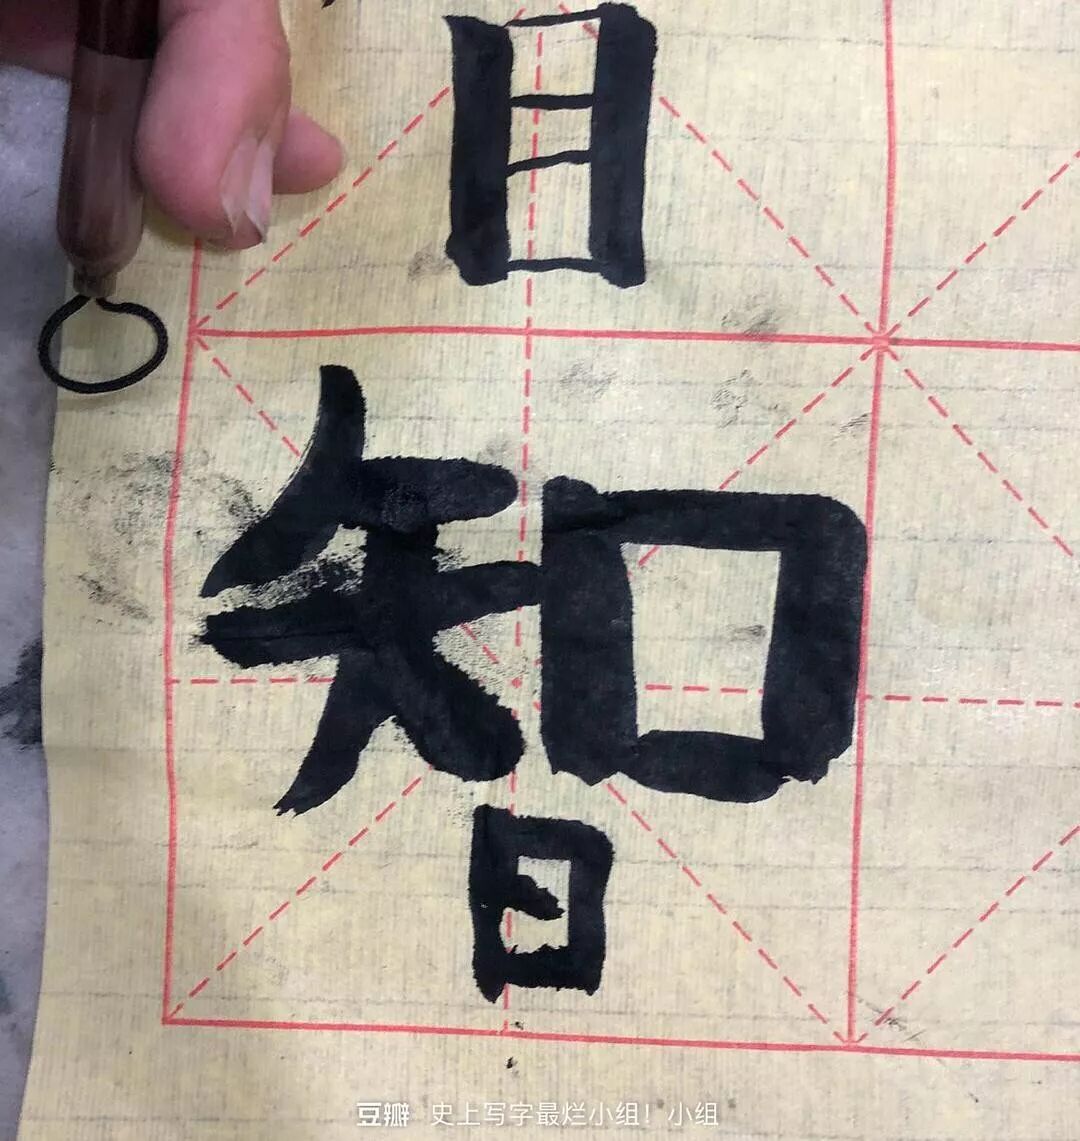 目
智
豆瓣 史上写字最烂小组！小组